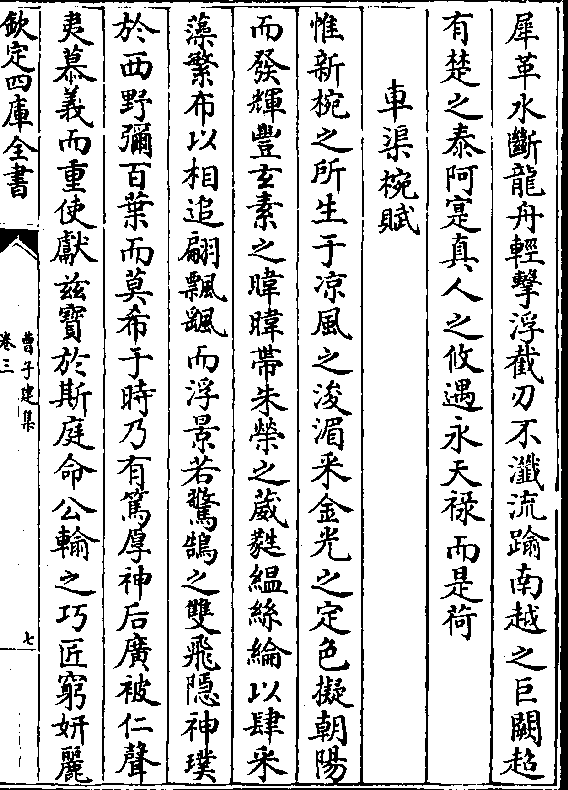 犀革水斷龍舟輕擊浮截刃不瀸流踰南越之巨闕超
有楚之泰阿寔真人之攸遇永天祿而是荷
車渠椀賦
惟新椀之所生于凉風之浚湄采金光之定色擬朝陽
而發輝豐玄素之暐曄帶朱榮之葳蕤緼絲綸以肆采
藻繁布以相追翩飄飖而浮景若驚鵠之雙飛隱神璞
於西野彌百葉而莫希于時乃有篤厚神后廣被仁聲
夷慕義而重使獻兹寶於斯庭命公輸之巧匠窮妍麗
欽定四庫全書
曹子建集
卷三
七